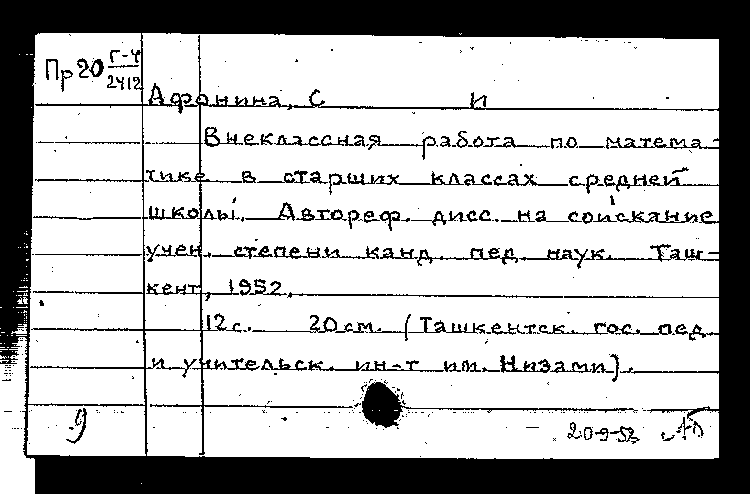 Пр20 Г-4
2412
Афонина, С И
Внеклассная работа по матема-
тике в старших классах средней
школы. Автореф. дисс. на соискание
учен. степени канд. пед. наук. Таш-
кент, 1952.
12с. 20см. (Ташкентск. гос. пед.
и учительск. ин-т им. Низами).
9
20-9-53